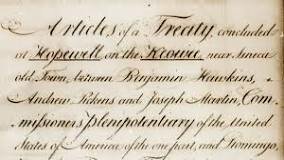 Articles of a Treaty, concluded
at Hopewell on the Keowee, near Seneca
old Town, between Benjamin Hawkins,
Andrew Pickens and Joseph Martin, Com-
missioners Plenipotentiary of the United
States of America of the one part, and Piomingo,